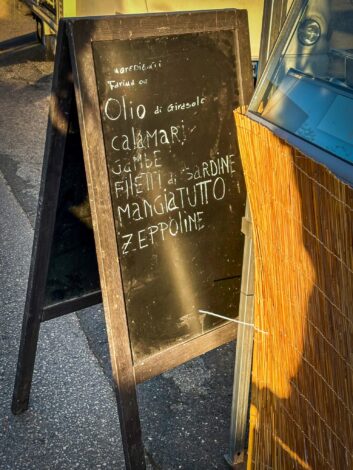 INGREDIENTI
FARINA 00
OLIO di GIRASOLE
CALAMARI
GAMBE
FILETTI di SARDINE
MANGIATUTTO
ZEPPOLINE